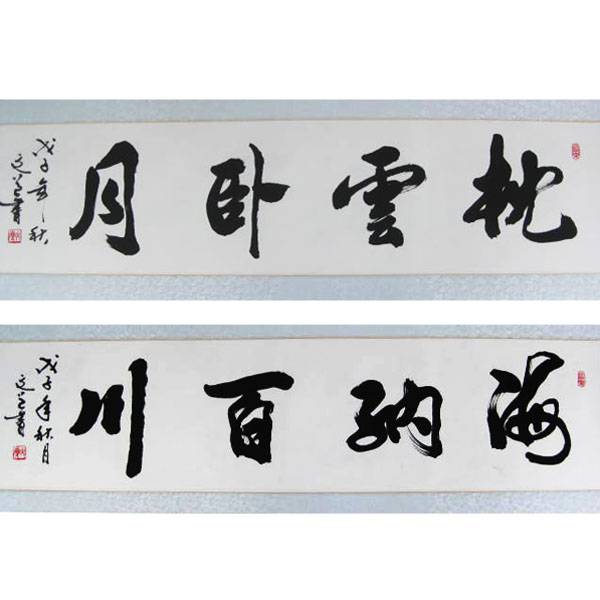 枕雲卧月
戊子年秋
海納百川
戊子年秋月